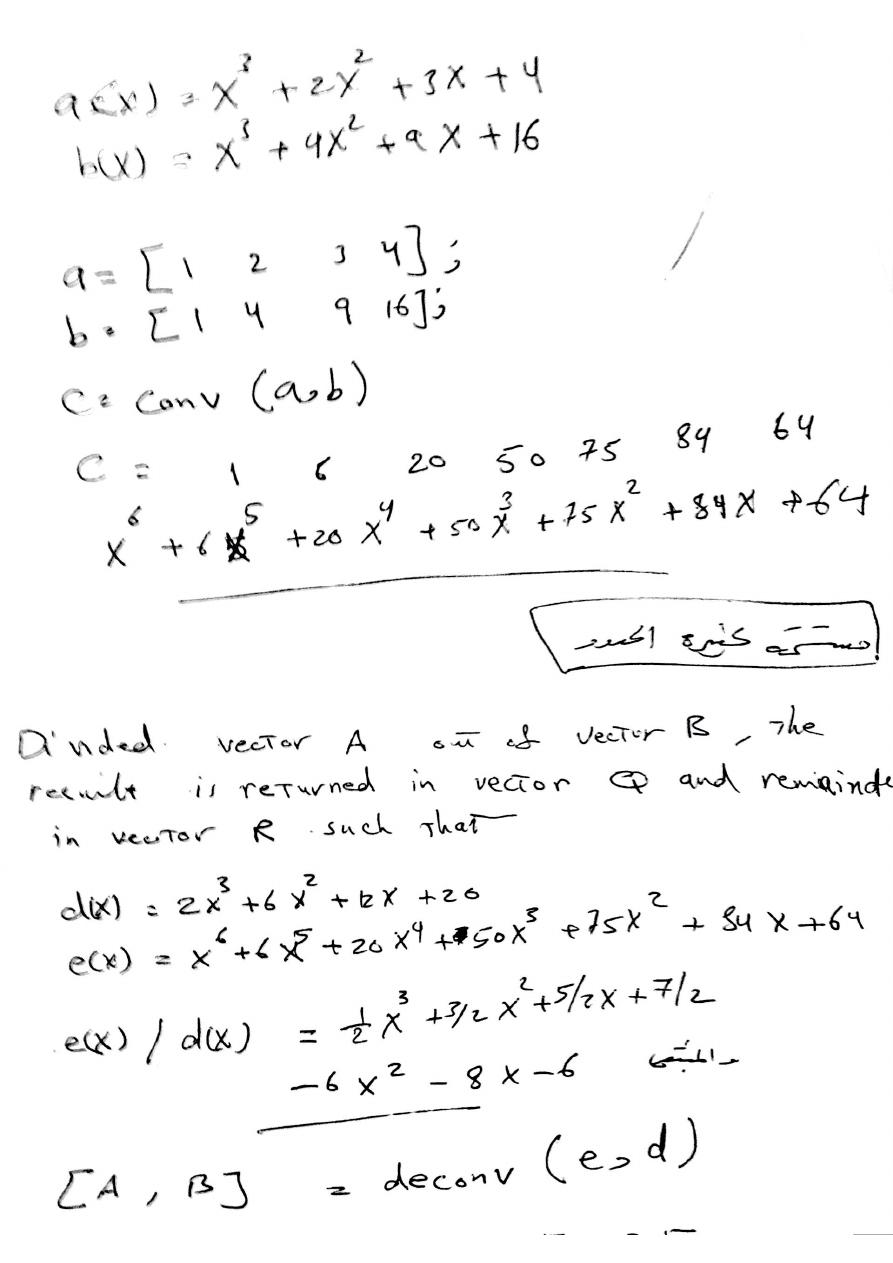 a(x) = x³ + 2x² + 3x + 4
b(x) = x³ + 4x² + 9x + 16
a = [1 2 3 4];
b = [1 4 9 16];
C = conv (a,b)
C = 1 6 20 50 75 84 64
x⁶ + 6x⁵ + 20x⁴ + 50x³ + 75x² + 84x + 64
كثيرة الحدود
vector A out of vector B, The
result is returned in vector Q and remainde
in vector R such that
d(x) = 2x³ + 6x² + 12x + 20
e(x) = x⁶ + 6x⁵ + 20x⁴ + 50x³ + 75x² + 84x + 64
e(x) / d(x) = 1/2 x³ + 3/2 x² + 5/2 x + 7/2
-6x² - 8x - 6 والمتبقي
[A, B] = deconv (e, d)